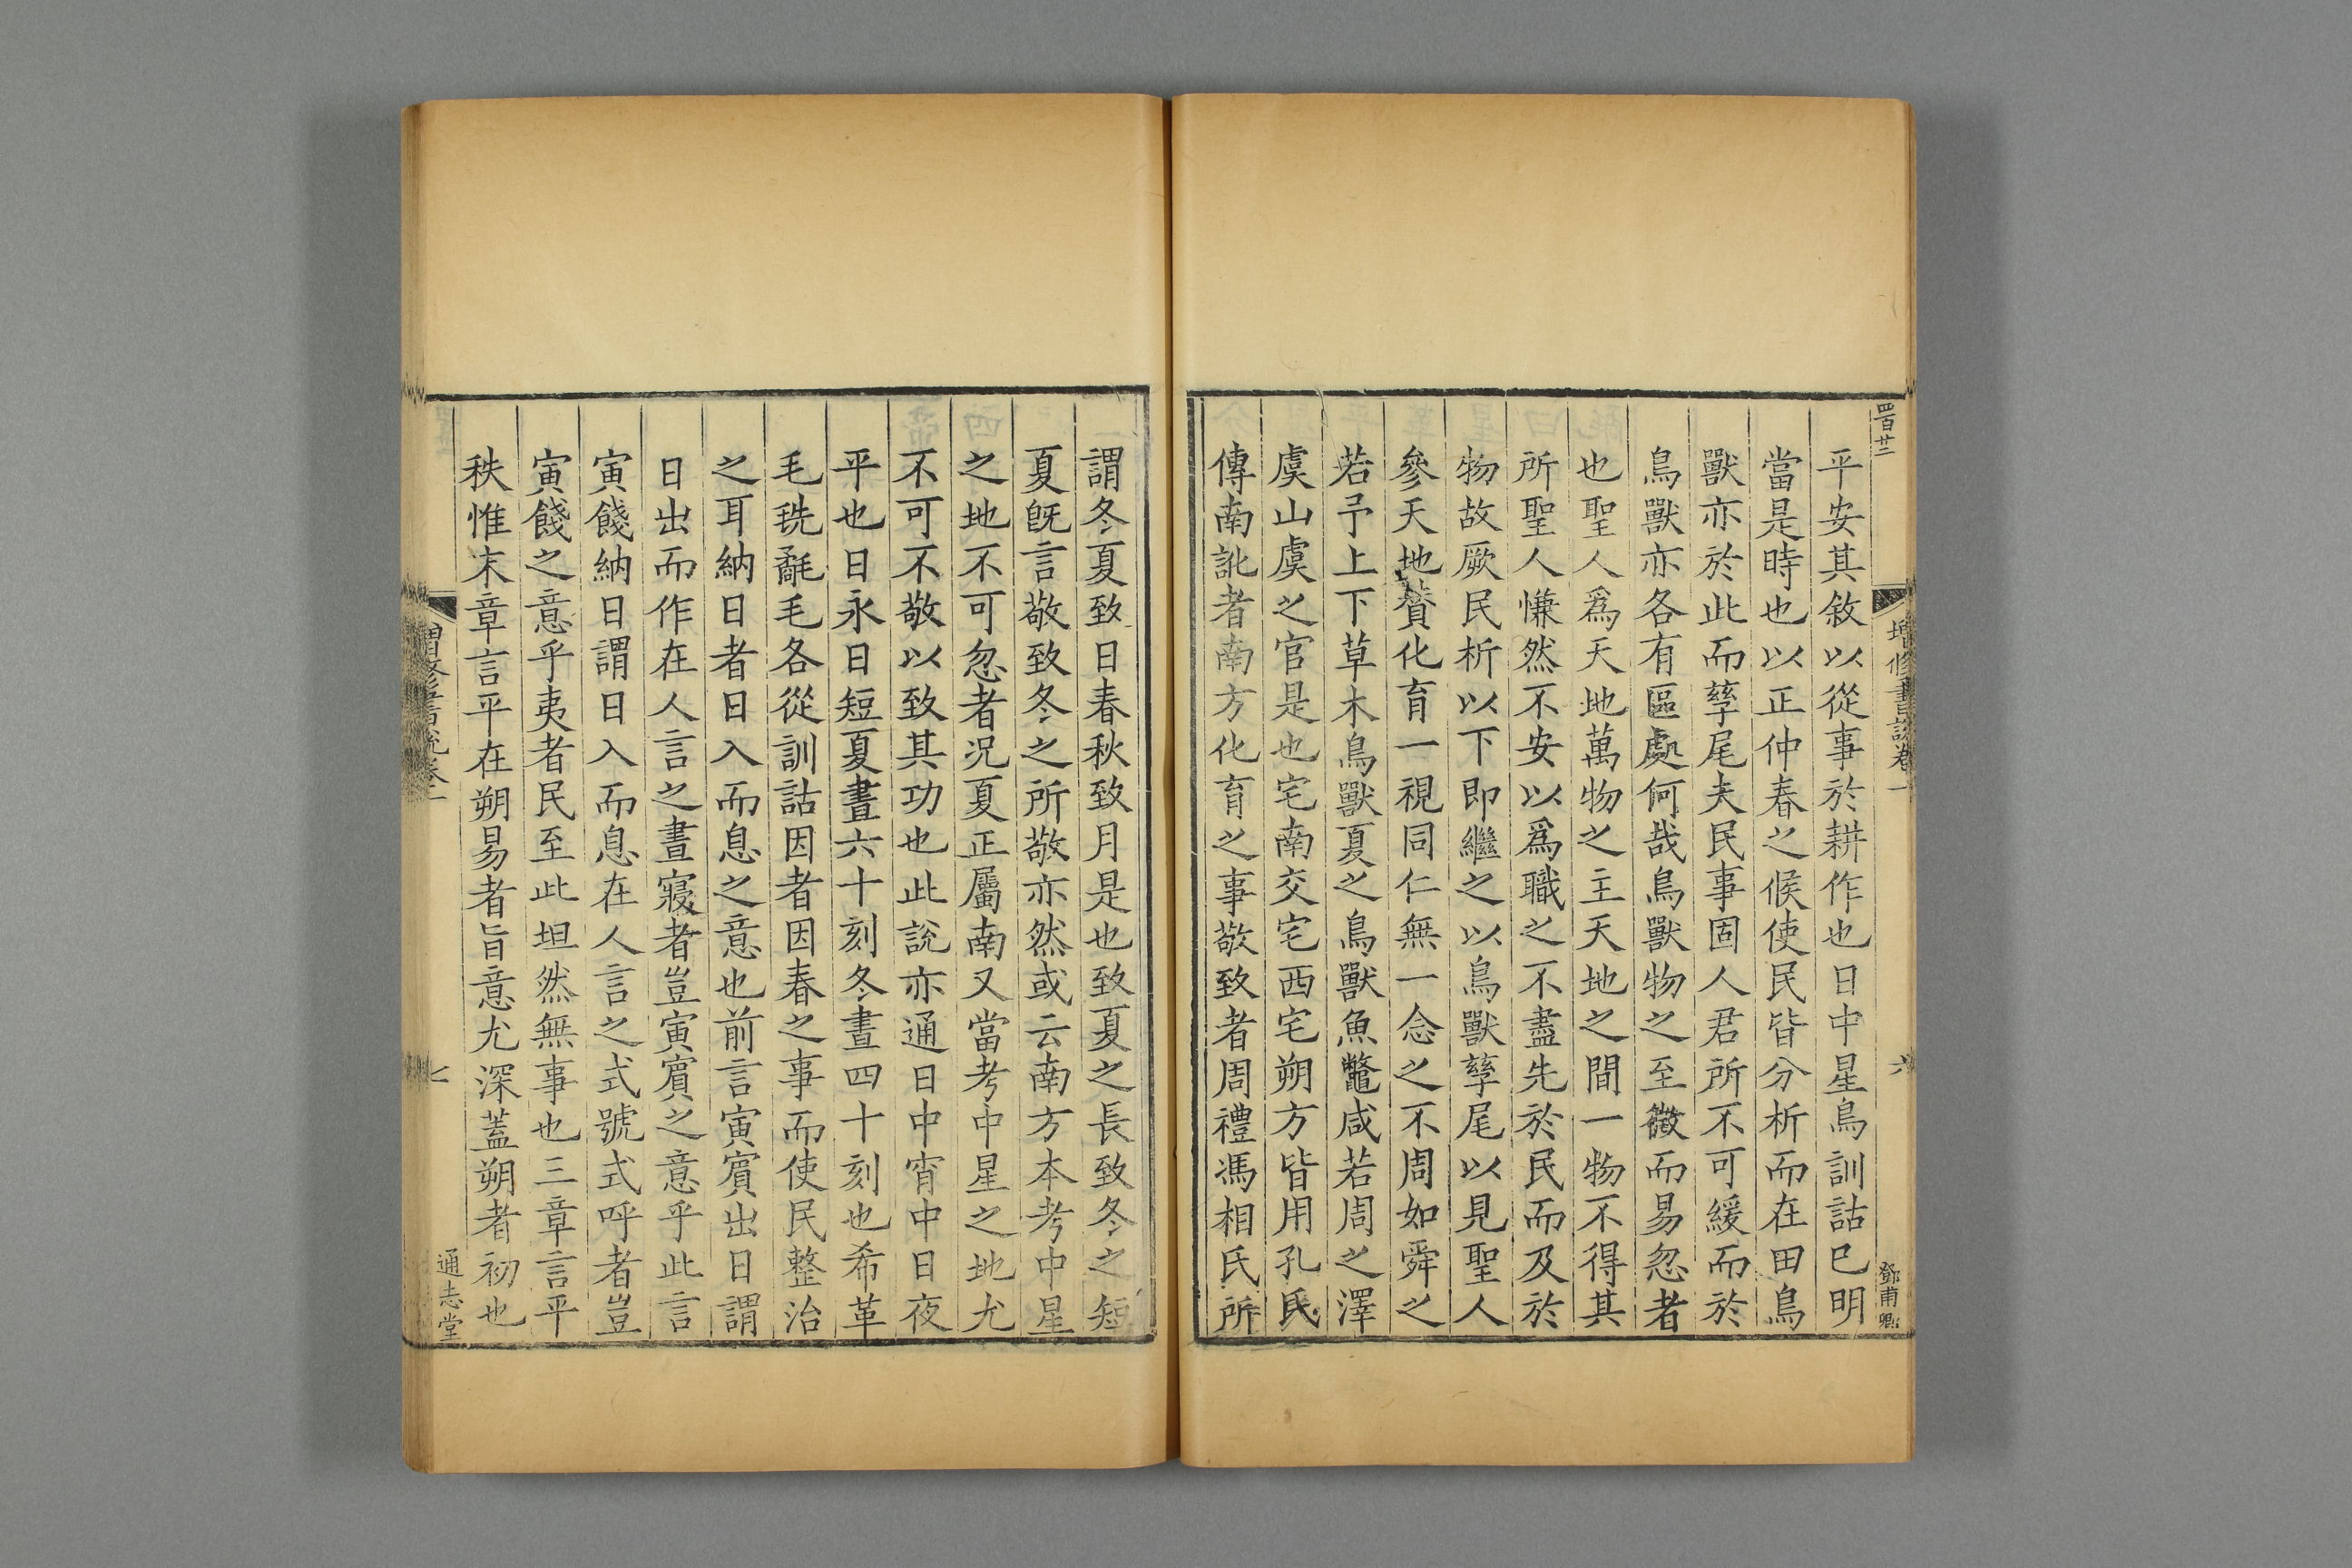 罒百廿二
增修書說卷一
六
鄧甫卿
平安其敘以從事於耕作也日中星鳥訓詁已明
當是時也以正仲春之候使民皆分析而在田鳥
獸亦於此而孳尾夫民事固人君所不可緩而於
鳥獸亦各有區處何哉鳥獸物之至微而易忽者
也聖人爲天地萬物之主天地之間一物不得其
所聖人慊然不安以爲職之不盡先於民而及於
物故厥民析以下即繼之以鳥獸孳尾以見聖人
參天地贊化育一視同仁無一念之不周如舜之
若予上下草木鳥獸夏之鳥獸魚鼈咸若周之澤
虞山虞之官是也宅南交宅西宅朔方皆用孔氏
傳南訛者南方化育之事敬致者周禮馮相氏所
謂冬夏致日春秋致月是也致夏之長致冬之短
夏旣言敬致冬之所敬亦然或云南方本考中星
之地不可忽者况夏正屬南又當考中星之地尤
不可不敬以致其功也此說亦通日中宵中日夜
平也日永日短夏晝六十刻冬晝四十刻也希革
毛毨氄毛各從訓詁因者因春之事而使民整治
之耳納日者日入而息之意也前言寅賓出日謂
日出而作在人言之晝寢者豈寅賓之意乎此言
寅餞納日謂日入而息在人言之式號式呼者豈
寅餞之意乎夷者民至此坦然無事也三章言平
秩惟末章言平在朔易者旨意尤深蓋朔者初也
增修書說卷一
七
通志堂